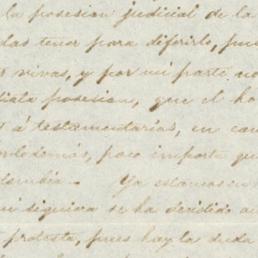 la posesion judicial de la
das tenor para diferirlo, pues
s vivas, y por mi parte no
diata posesion, que el ha
s á testamentarías, en ca
todemás, poco importa qu
lombia. Ya estamos
ni siquiera se ha decidido a
protesta, pues hay la duda